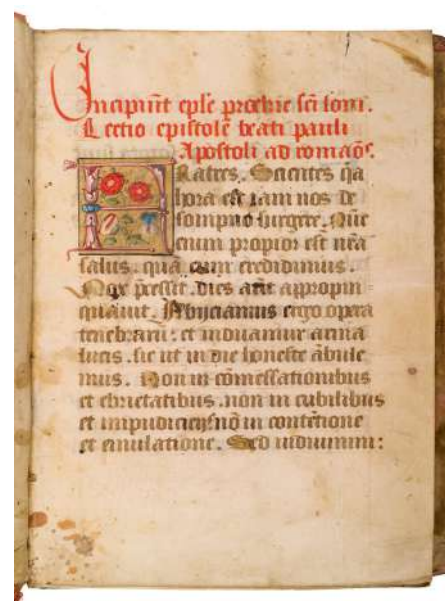 Incipiūt eplē prochie sc̄i loni.
Lectio epistole beati pauli
Apostoli ad romaōs.
Fratres. Scientes q̄a
hora est iam nos de
sompno surgere. Nūc
enim propior est nr̄a
salus. quā cum credidimus.
Nox p̄cessit. dies autē appropin
quauit. Abijciamus ergo opera
tenebrarū: et induamur arma
lucis. sic ut in die honeste ābule
mus. Non in cōmessationibus
et ebrietatibus. non in cubilibus
et impudicicijs nō in contētione
et emulatione. Sed induimini: